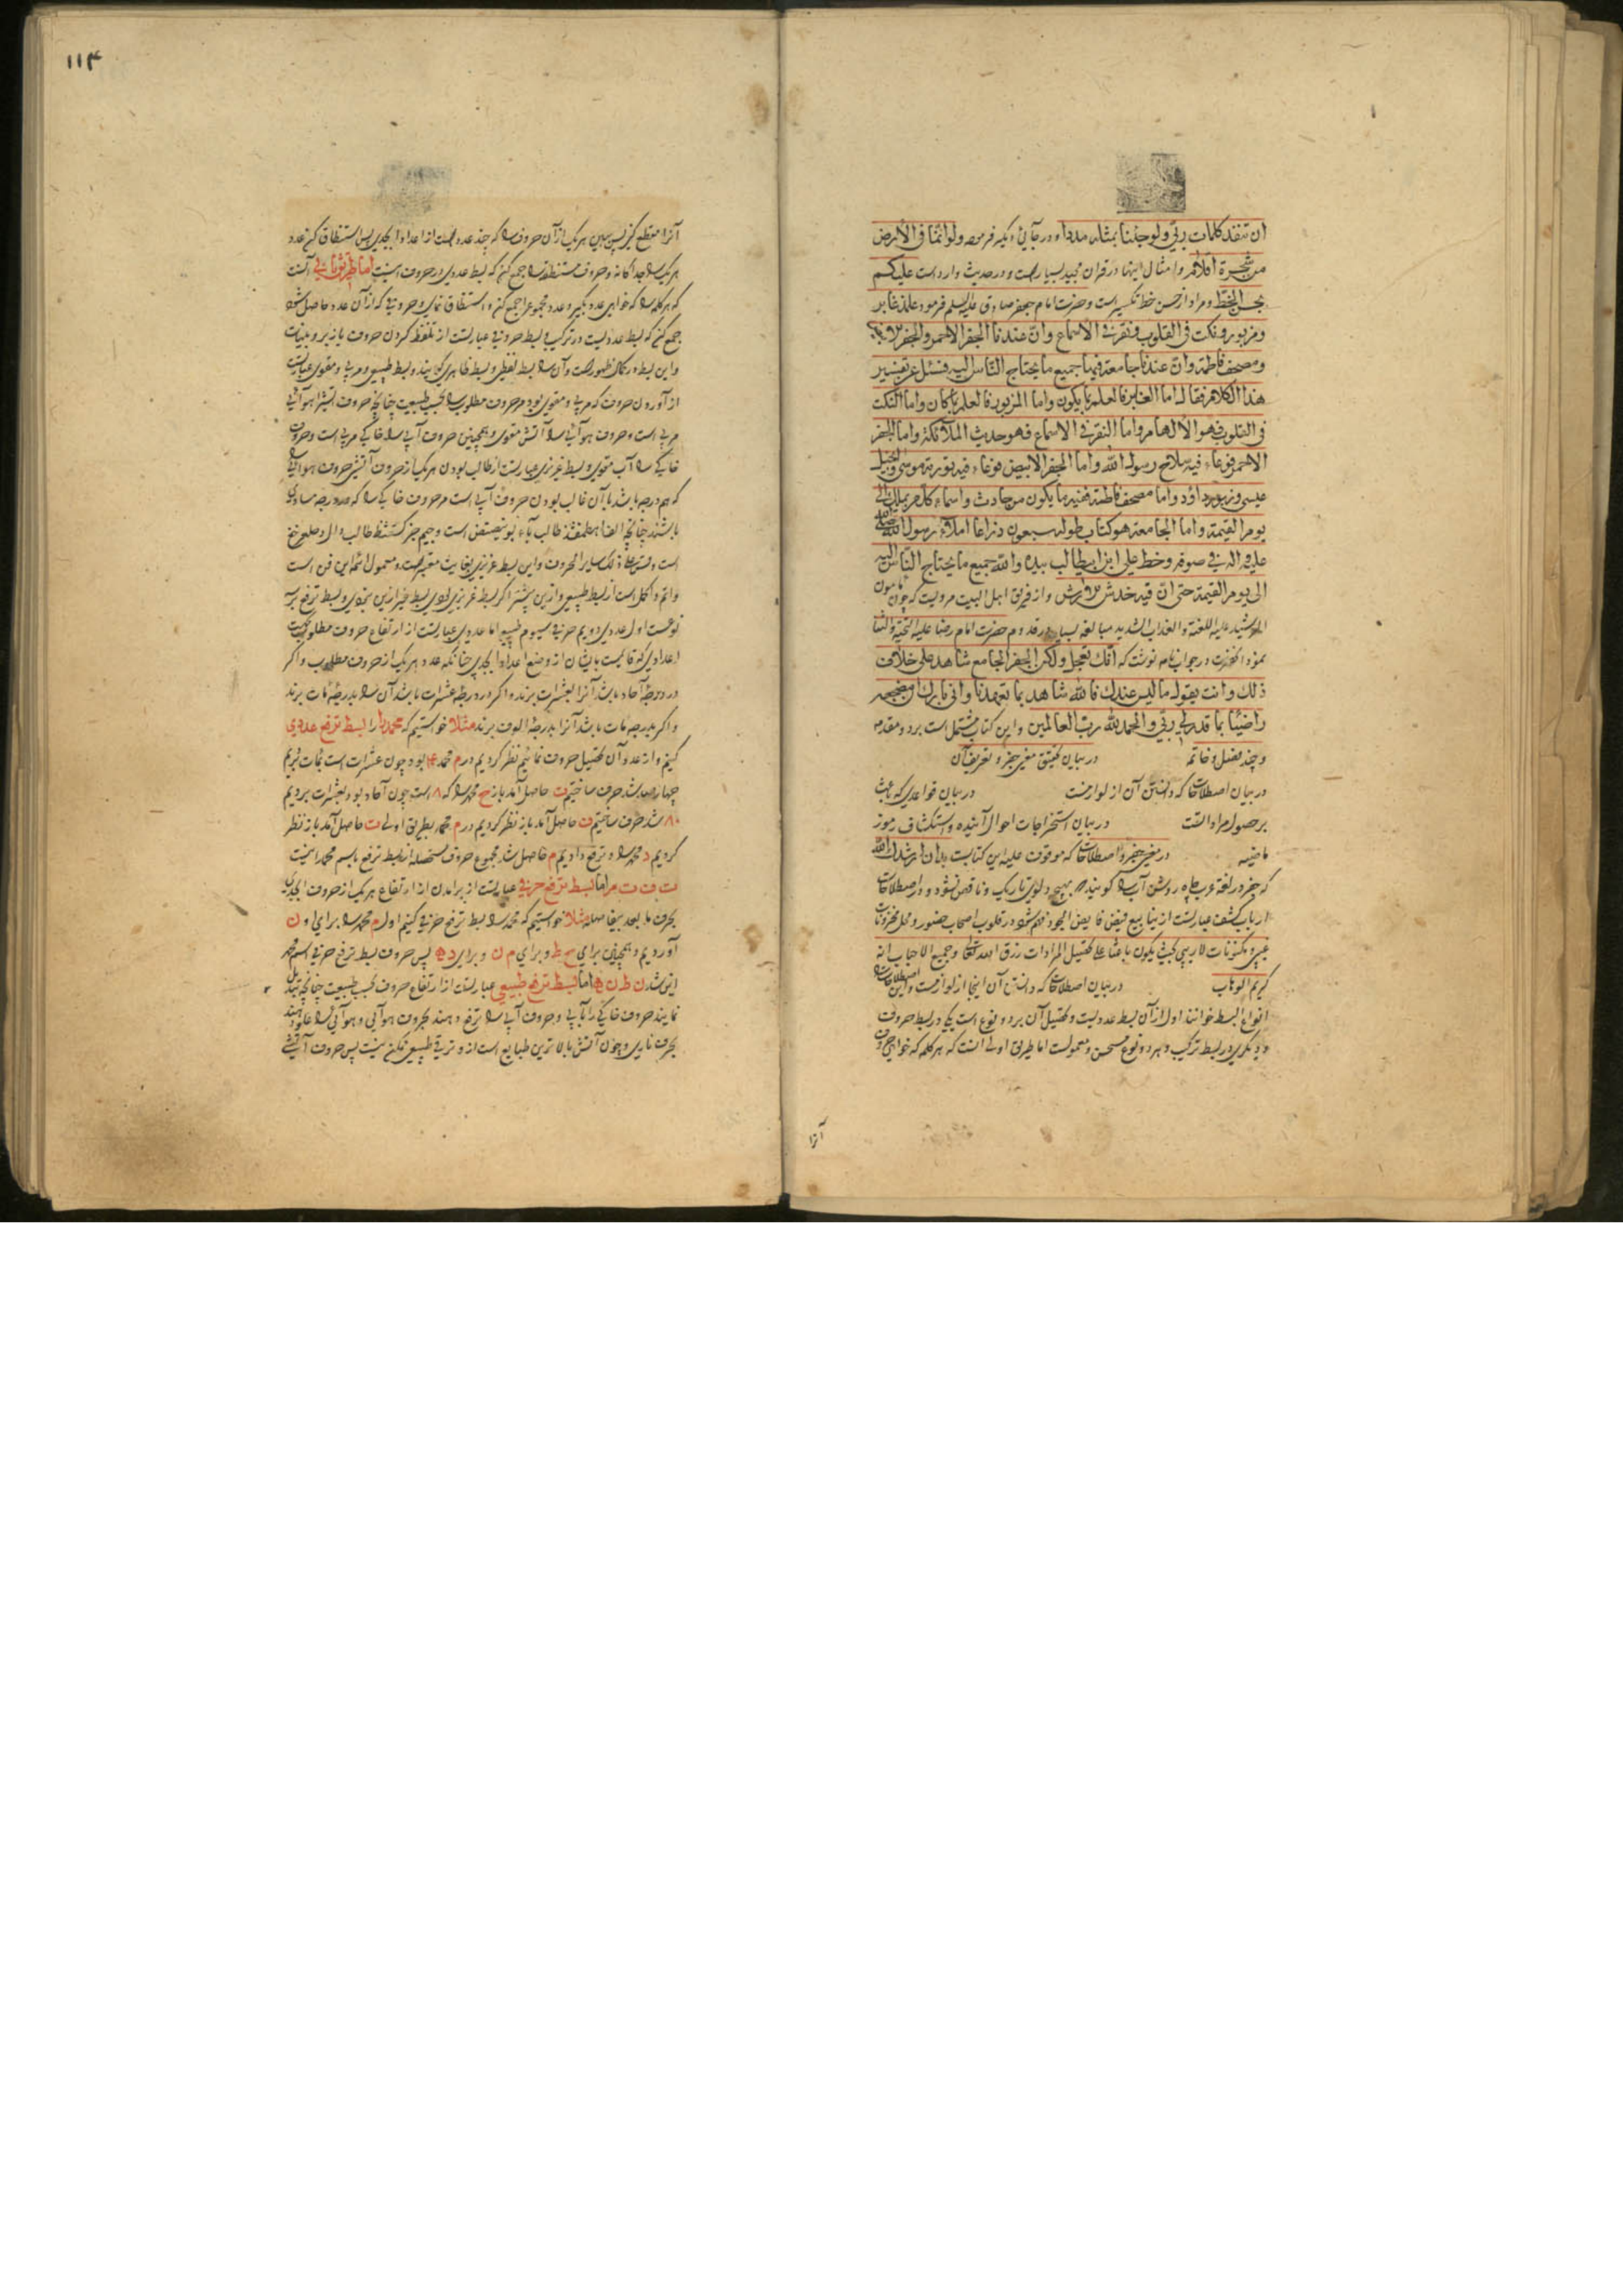 ان تنفد کلمات ربی ولو جئنا بمثله مددا و در جائی دیگر فرموده ولو انما فی الارض
من شجرة اقلام و امثال اینها در قران مجید بسیار است و در حدیث وارد است علیکم
بحسن الخط و مراد از حسن خط تکسیر است و حضرت امام جعفر صادق علیه السلم فرمود علمنا غابر
ومزبور ونکت فی القلوب ونقر فی الاسماع وان عندنا الجفر الاحمر والجفر الابیض
ومصحف فاطمة وان عندنا جامعة فیها جمیع ما یحتاج الناس الیه فسئل عن تفسیر
هذا الکلام فقال اما الغابر فالعلم بما یکون واما المزبور فالعلم بما کان واما النکت
فی القلوب فهو الالهام واما النقر فی الاسماع فهو حدیث الملائکة واما الجفر
الاحمر فوعاء فیه سلاح رسول الله واما الجفر الابیض فوعاء فیه توریة موسی وانجیل
عیسی وزبور داود واما مصحف فاطمة ففیه ما یکون من حادث واسماء کل من یملک الی
یوم القیمة واما الجامعة هو کتاب طوله سبعون ذراعا املاء رسول الله صلی الله
علیه واله فی وخط علی ابن ابیطالب بیده والله جمیع ما یحتاج الناس الیه
الی یوم القیمة حتی ان فیه خدش و از فریق اهل البیت مرویست که چون مامون
علیه اللعنة والعذاب الشدید مبالغه بسیار در قدوم حضرت امام رضا علیه التحیة والثنا
نمود انحضرت در جواب نامه نوشت که انک تعجل ولکن الجفر الجامع شاهد علی خلاف
ذلک وانت بقوله ما لیس عندک فالله شاهد بما
راضیا بما قدر لی ربی والحمد لله رب العالمین و این کتاب مشتمل است بر دو مقدمه
و چند فصل و خاتمه در بیان تحقیق معنی جفر و تعریف آن
در بیان اصطلاحات که دانستن آن از لوازمست در بیان قواعدی که باعث
بر حصول مراد است در بیان استخراجات احوال آینده و استکشاف رموز
ماضیه در معنی جفر و اصطلاحات که موقوف علیه این کتابست بدان ارشدک الله
که جفر در لغة عرب چاه روشن آب را گویند که بهیچ دلوی تاریک و ناقص نشود و در اصطلاحات
ارباب کشف عبارتست از ینابیع فیض فایض الجود در قلوب اصحاب حضور و محل مخزونات
غیبی و مکنونات لاریبی بحیث یکون باعثا علی تحصیل المرادات رزق الله تعالی وجمیع الاحباب انه
کریم الوهاب در بیان اصطلاحات که دانستن آن اینجا از لوازمست و این اصطلاحات را
انواع البسط خوانند اول از آن بسط عددیست و تحصیل آن بر دو نوع است یکی در بسط حروف
و دیگری در بسط ترکیب و هر دو نوع مستحسن و معمولست اما طریق اولی انست که هر کلمه که خواهی حروف
آنرا
١١۴
آنرا مقطع کن پس ببین هر یک از آن حروف را که چند عدد است از اعداد ابجدی پس استنطاق کن عدد
هر یک را جداگانه و حروف مستنطقه را جمع کن که بسط عددی در حروف اینست اما طریق ثانی آنست
که هر کلمه را که خواهی عدد بگیر و عدد مجموع را جمع کن و استنطاق نمای و حروفی که از آن عدد حاصل شود
جمع کن که بسط عددیست در ترکیب و بسط حروفی عبارتست از تلفظ کردن حروف بازبر و بینات
و این بسط در کمال ظهور است و آن را بسط لفظی و بسط ظاهری گویند و بسط طبیعی و مربی و مقوی عبارتست
از آوردن حروف که مربی و مقوی بود مر حروف مطلوب را بحسب طبیعت چنانچه حروف آتشی را هوائی
مربی است و حروف هوائی را آتش مقوی و همچنین حروف آبی را خاکی مربی است و حروف
خاکی را آب مقوی و بسط غریزی عبارتست از طالب بودن هر یک از حروف آتشی حروف هوائی را
که هم درجه باشد با آن غالب بودن حروف آبی است مر حروف خاکی را که در درجه مساوی
باشند چنانچه الف اهطمفشذ طالب باء بوینصتض است و جیم جزکسقثظ طالب دال دحلعرخغ
است وقس علی ذلک سایر الحروف و این بسط غریزی بغایت معتبر است و معمول ائمه این فن است
واتم و اکمل است از بسط طبیعی و بسط ترفع بر سه
نوعست اول عددی دویم حرفی سیوم طبیعی اما عددی عبارتست از ارتفاع حروف مطلوب بحسب
اعدادی که قائمست بایشان از وضع اعداد ابجدی چنانکه عدد هر یک از حروف مطلوب و اگر
در درجه آحاد باشد آنرا بعشرات برند و اگر در درجه عشرات باشد آن را بدرجه مات برند
و اگر بدرجه مات باشد آنرا بدرجه الوف برند مثلا خواستیم که محمد را بسط ترفع عددی
کنیم و از عدد آن تحصیل حروف نمائیم نظر کردیم در م محمد ۴۰ بود چون عشرات است بمات بردیم
چهارصد شد حرف ساختیم ت حاصل آمد باز ح محمد را که ۸ است چون آحاد بود بعشرات بردیم
۸۰ شد حرف ساختیم ف حاصل آمد باز نظر کردیم در م محمد بطریق اولی ت حاصل آمد باز نظر
کردیم د محمد را و ترفع دادیم م حاصل شد مجموع حروف مستحصله از بسط ترفع باسم محمد اینست
ت ف ت م اما بسط ترفع حرفی عبارتست از برآمدن از ارتفاع هر یک از حروف ابجدی
بحرف مابعد بیفاصله مثلا خواستیم که محمد را بسط ترفع حرفی کنیم اول م محمد را برای او ن
آوردیم و همچنین برای ح ط و برای م ن و برای د ه پس حروف بسط ترفع حرفی اسم محمد
این شد ن ط ن ه اما بسط ترفع طبیعی عبارتست از ارتفاع حروف بحسب طبیعت چنانچه تبدیل
نمایند حروف خاکی را بآبی و حروف آبی را ترفع دهند بحروف هوائی و هوائی را علو دهند
بحرف ناری و چون آتش بالاترین طبایع است از و ترقی طبیعی ممکن نیست پس حروف آتشی